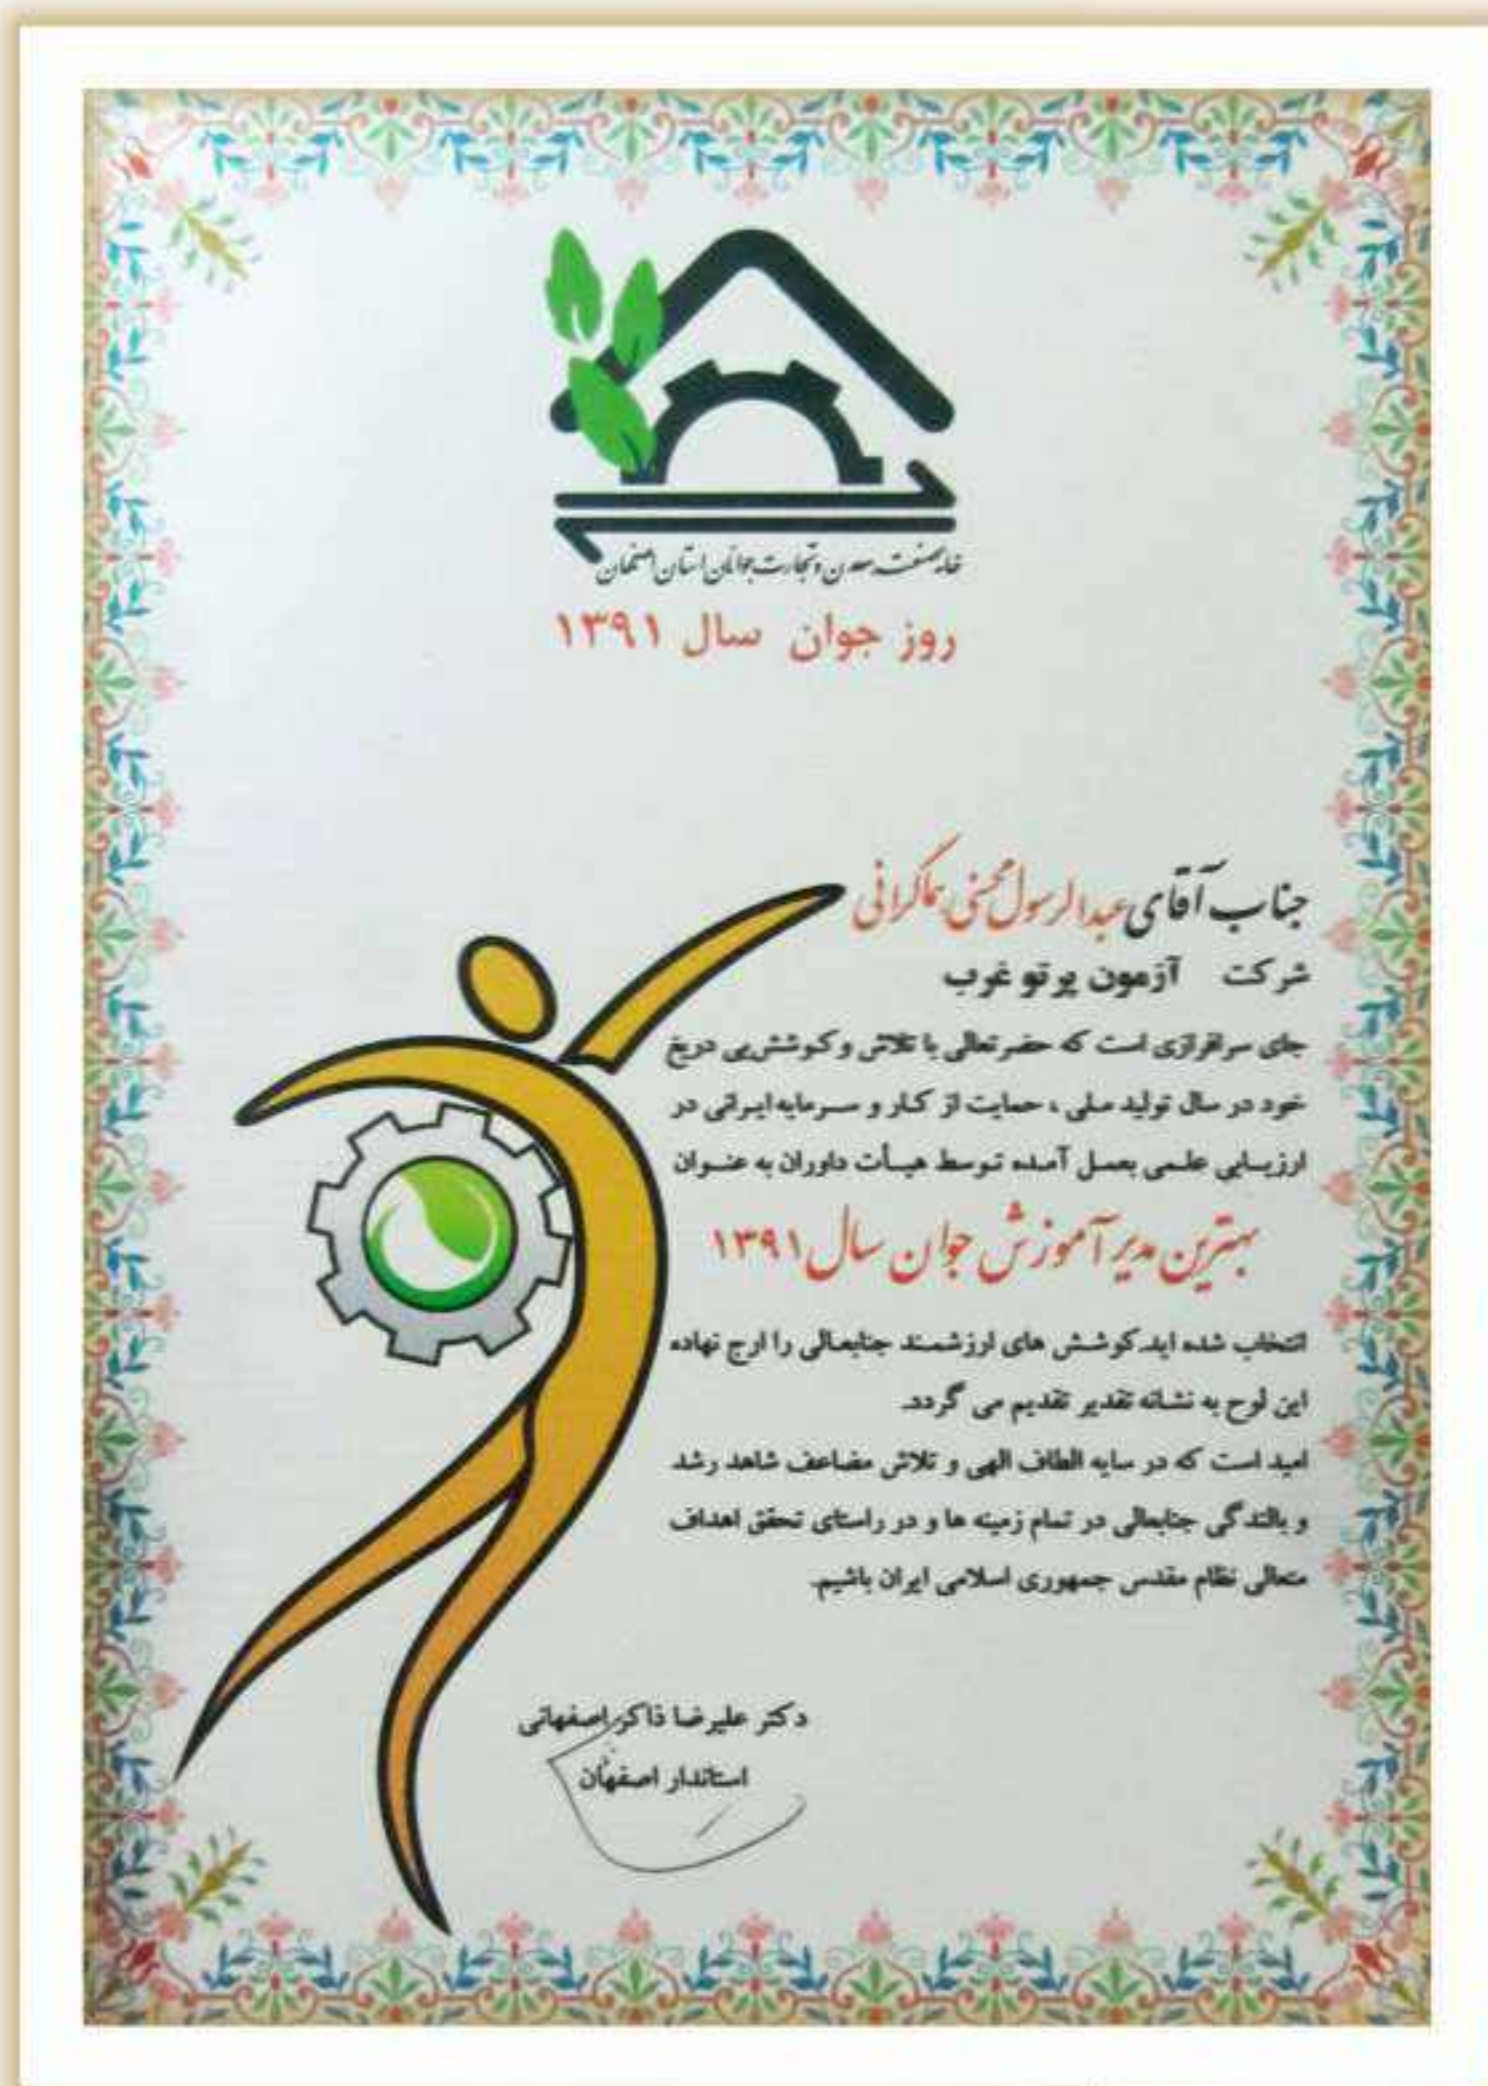 خانه صنعت، معدن و تجارت جوانان استان اصفهان
روز جوان سال ۱۳۹۱
جناب آقای عبدالرسول محسنی هماگرانی
شرکت آزمون پرتو غرب
جای سرافرازی است که حضرتعالی با تلاش و کوشش بی دریغ
خود در سال تولید ملی ، حمایت از کار و سرمایه ایرانی در
ارزیابی علمی بعمل آمده توسط هیأت داوران به عنوان
بهترین مدیر آموزش جوان سال ۱۳۹۱
انتخاب شده اید.کوشش های ارزشمند جنابعالی را ارج نهاده
این لوح به نشانه تقدیر تقدیم می گردد.
امید است که در سایه الطاف الهی و تلاش مضاعف شاهد رشد
و بالندگی جنابعالی در تمام زمینه ها و در راستای تحقق اهداف
متعالی نظام مقدس جمهوری اسلامی ایران باشیم.
دکتر علیرضا ذاکر اصفهانی
استاندار اصفهان